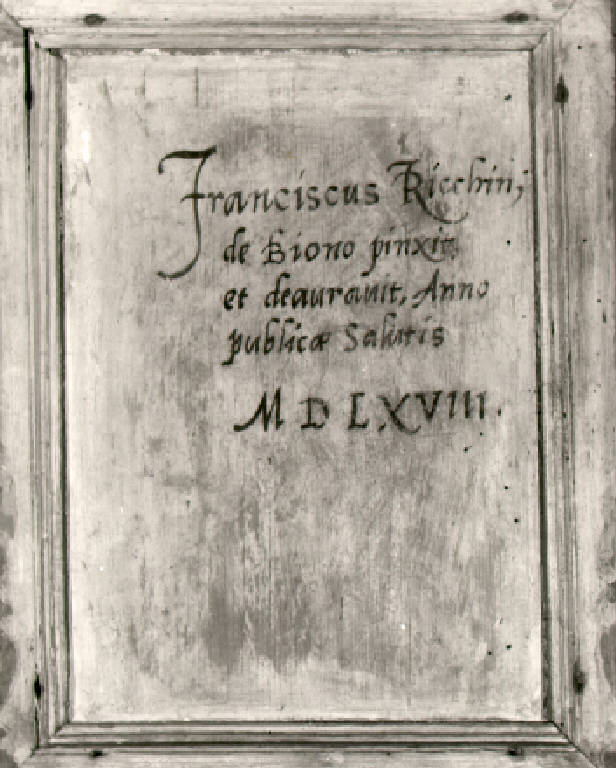 Franciscus Ricchin,
de Biono pinxit
et deaurauit, Anno
publicæ Salutis
M D LXVIII.